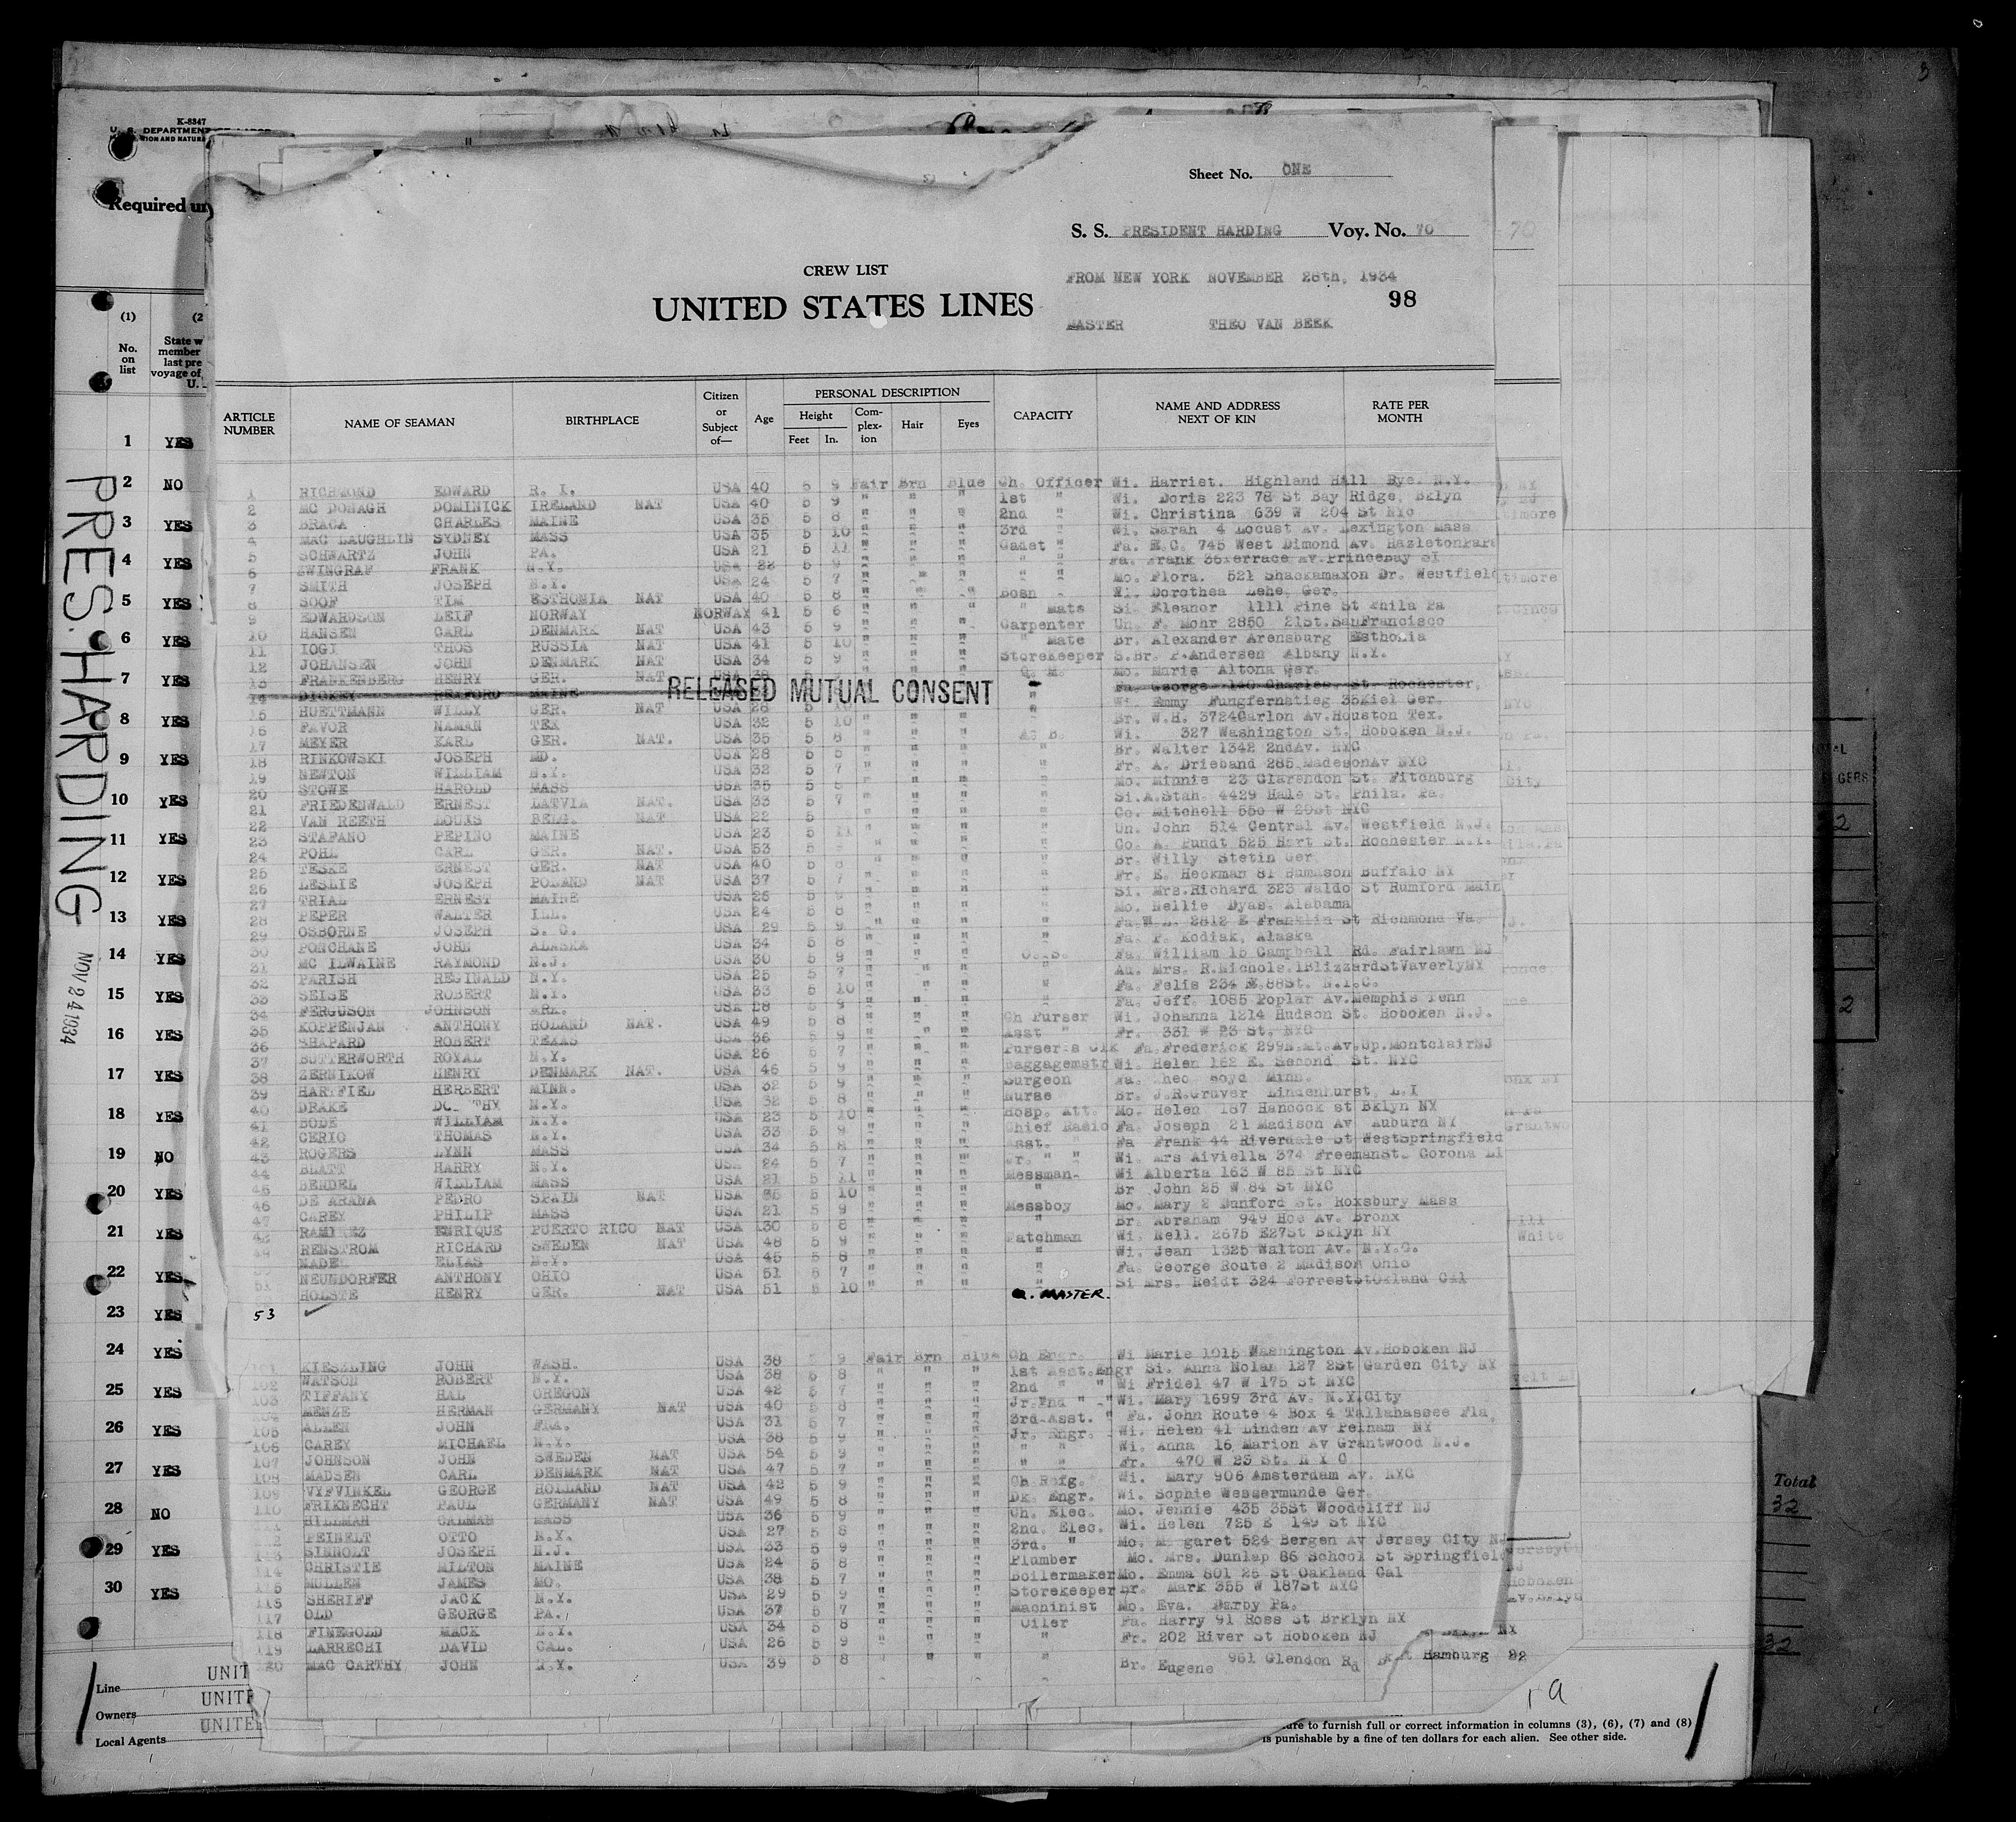 K-8347
U. S. DEPARTMENT
Required un
Sheet No. ONE
S. S. PRESIDENT HARDING Voy. No. 70
CREW LIST
FROM NEW YORK NOVEMBER 28th, 1934
UNITED STATES LINES
98
MASTER THEO VAN BEEK
ARTICLE NUMBER NAME OF SEAMAN BIRTHPLACE Citizen or Subject of— Age PERSONAL DESCRIPTION Height Feet In. Complexion Hair Eyes CAPACITY NAME AND ADDRESS NEXT OF KIN RATE PER MONTH
1 RICHMOND EDWARD R. I. USA 40 5 9 Fair Brn Blue Ch. Officer Wi. Harriet. Highland Hall Rye. N.Y.
2 MC DONAGH DOMINICK IRELAND NAT USA 40 5 9 " " " 1st " Wi. Doris 223 78 St Bay Ridge, Bklyn
3 BRACA CHARLES MAINE USA 35 5 8 " " " 2nd " Wi. Christina 639 W 204 St NYC
4 MAC LAUGHLIN SYDNEY MASS USA 35 5 10 " " " 3rd " Wi. Sarah 4 Locust Av. Lexington Mass
5 SCHWARTZ JOHN PA. USA 21 5 11 " " " Cadet " Fa. E.C. 745 West Dimond Av. Hazleton
6 ZWINGRAF FRANK N.Y. USA 5 9 " " " " " Fa. Frank 36 Terrace Av. Princebay SI
7 SMITH JOSEPH N.Y. USA 24 5 7 " " " " " Mo. Flora. 521 Shackamaxon Dr. Westfield
8 SOOF TIM ESTHONIA NAT USA 40 5 8 " " " Bosn Wi. Dorothea Lehe, Ger.
9 EDWARDSON LEIF NORWAY NORWAY 41 5 6 " " " " Mate Si. Eleanor 1111 Pine St Phila Pa
10 HANSEN CARL DENMARK NAT USA 43 5 9 " " " Carpenter Un. F. Mohr 2850 21St. SanFrancisco
11 IOGI THOS RUSSIA NAT USA 41 5 10 " " " " Mate Br. Alexander Arensburg Esthonia
12 JOHANSEN JOHN DENMARK NAT USA 34 5 9 " " " Storekeeper S.Br. P. Andersen Albany N.Y.
13 FRANKENBERG HENRY GER. NAT Q. M. Mo. Marie Altona Ger.
14 DICKEY MAINE RELEASED MUTUAL CONSENT " Fa. George 140 Charles, St. Rochester,
15 HUETTMANN WILLY GER. NAT USA 28 5 " Wi. Emmy Jungfernstieg 35 Kiel Ger.
16 FAVOR NAMAN TEX USA 32 5 10 " " " " Br. W.H. 3724 Carlon Av. Houston Tex.
17 MEYER KARL GER. NAT. USA 35 5 8 " " " A. B. Wi. 327 Washington St. Hoboken N.J.
18 RINKOWSKI JOSEPH MD. USA 28 5 5 " " " " Br. Walter 1342 2ndAv. NYC
19 NEWTON WILLIAM N.Y. USA 32 5 7 " " " " Fr. A. Drieband 285 MadesonAv NYC
20 STOWE HAROLD MASS USA 35 5 " " " " Mo. Minnie 23 Clarendon St. Fitchburg
21 FRIEDENWALD ERNEST LATVIA NAT. USA 33 5 7 " " " " Si. A.Stah. 4429 Hale St. Phila. Pa.
22 VAN REETH LOUIS BELG. NAT USA 22 5 " " " " Co. Mitchell 550 W 20St NYC
23 STAFANO PEPINO MAINE USA 23 5 11 " " " " Un. John 514 Central Av. Westfield N.J.
24 POHL CARL GER. NAT. USA 53 5 " " " " Co. A. Pundt 525 Hart St. Rochester N.Y.
25 TESKE ERNEST GER. NAT USA 40 5 8 " " " " Br. Willy Stetin Ger
26 LESLIE JOSEPH POLAND NAT USA 37 5 7 " " " " Fr. E. Heckman 81 Bumason Buffalo NY
27 TRIAL ERNEST MAINE USA 26 5 9 " " " " Si. Mrs.Richard 323 Waldo St Rumford Main
28 PEPER WALTER ILL. USA 24 5 8 " " " " Mo. Nellie Dyas, Alabama
29 OSBORNE JOSEPH S. C. USA 29 5 9 " " " " Fa. W.L. 2812 E Franklin St Richmond Va.
30 PONCHANE JOHN ALASKA USA 34 5 8 " " " " Fa. P. Kodiak, Alaska
31 MC ILWAINE RAYMOND N.J. USA 30 5 9 " " " O.S. Fa. William 15 Campbell Rd. Fairlawn NJ
32 PARISH REGINALD N.Y. USA 25 5 7 " " " " Au. Mrs. R.Nichols. 1BlizzardStWaverlyNY
33 SEISE ROBERT N.Y. USA 33 5 10 " " " " Fa. Felis 234 E.88St. N.Y.C.
34 FERGUSON JOHNSON ARK. USA 28 5 9 " " " " Fa. Jeff. 1085 Poplar Av.Memphis Tenn
35 KOPPENJAN ANTHONY HOLAND NAT. USA 49 5 8 " " " Ch Purser Wi. Johanna 1214 Hudson St. Hoboken N.J.
36 SHAPARD ROBERT TEXAS USA 36 5 9 " " " Asst " Fr. 331 W 23 St. NYC
37 BUTTERWORTH ROYAL N.Y. USA 26 5 7 " " " Purser's Clk Fa. Frederick 299N.Mt.Av.Up.MontclairNJ
38 ZERNIKOW HENRY DENMARK NAT. USA 46 5 9 " " " Baggagemstr Wi. Helen 162 E. Second St. NYC
39 HARTFIEL HERBERT MINN. USA 32 5 9 " " " Surgeon Fa. Theo Boyd Minn.
40 DRAKE DO THY N.Y. USA 32 5 8 " " " Nurse Br. J.R.Gruver Lindenhurst, L.I
41 BODE WILLIAM N.Y. USA 23 5 10 " " " Hosp. Att. Mo. Helen 187 Hancock st Bklyn NY
42 CERIO THOMAS N.Y. USA 33 5 9 " " " Chief Radio Fa. Joseph 21 Madison Av Auburn NY
43 ROGERS LYNN MASS USA 34 5 8 " " " Asst. " Fa Frank 44 Riverdale St WestSpringfield
44 BLATT HARRY N.Y. USA 24 5 7 " " " Jr. " " Wi. Mrs Aiviella 374 FreemanSt. Corona LI
45 BENDEL WILLIAM MASS USA 21 5 11 " " " Messman. Wi Alberta 163 W 85 St NYC
46 DE ARANA PEDRO SPAIN NAT USA 35 5 10 " " " " Br John 25 W 84 St NYC
47 CAREY PHILIP MASS USA 21 5 9 " " " Messboy Mo. Mary 2 Danford St. Roxsbury Mass
RAMIREZ ENRIQUE PUERTO RICO NAT USA 30 5 8 " " " " Br. Abraham 949 Hoe Av. Bronx
49 RENSTROM RICHARD SWEDEN NAT USA 48 5 9 " " " Watchman Wi. Nell. 2675 E27St Bklyn NY
NADEL ELIAS N.Y. USA 45 5 8 " " " " Wi. Jean 1325 Walton Av. N.Y.C.
51 NEUNDORFER ANTHONY OHIO USA 51 5 7 " " " " Fa. George Route 2 Madison Ohio
HOLSTE HENRY GER. NAT USA 51 5 10 " " " " Si Mrs. Reidt 324 ForrestStOakland Cal
53 MASTER.
101 KIESSLING JOHN WASH. USA 38 5 9 Fair Brn Blue Ch Engr. Wi Marie 1015 Washington Av.Hoboken NJ
102 WATSON ROBERT N.Y. USA 38 5 8 " " " 1st Asst.Engr Si. Anna Nolan 127 2St Garden City NY
103 TIFFANY HAL OREGON USA 42 5 7 " " " 2nd " " Wi Fridel 47 W 175 St NYC
104 MENZE HERMAN GERMANY NAT USA 40 5 8 " " " Jr.2nd " " Wi. Mary 1699 3rd Av. N.Y.City
105 ALLEN JOHN FLA. USA 31 5 7 " " " 3rd-Asst. " Fa. John Route 4 Box 4 Tallahassee Fla,
106 CAREY MICHAEL N.Y. USA 38 5 9 " " " Jr. Engr. Wi. Helen 41 Linden Av Pelham NY
107 JOHNSON JOHN SWEDEN NAT USA 54 5 9 " " " " " Wi. Anna 16 Marion Av Grantwood N.J.
108 MADSEN CARL DENMARK NAT USA 47 5 7 " " " " " Fr. 470 W 23 St. N Y C
109 VYFVINKEL GEORGE HOLLAND NAT USA 42 5 9 " " " Ch Refg. Wi. Mary 906 Amsterdam Av. NYC
110 FRIKNECHT PAUL GERMANY NAT USA 49 5 8 " " " Dk. Engr. Wi. Sophie Wessermunde Ger.
HILLMAN CALMAN MASS USA 36 5 9 " " " Ch. Elec. Mo. Jennie 435 35St Woodcliff NJ
PEINELT OTTO N.Y. USA 27 5 8 " " " 2nd. Elec. Wi. Helen 725 E 149 St NYC
113 SINNOLT JOSEPH N.J. USA 33 5 9 " " " 3rd. " Mo. M garet 524 Bergen Av Jersey City NJ
114 CHRISTIE MILTON MAINE USA 24 5 8 " " " Plumber Mo. Mrs. Dunlap 86 School St Springfield
115 MULLEN JAMES MO. USA 38 5 7 " " " Boilermaker Mo. Emma 801 25 St Oakland Cal
SHERIFF JACK N.Y. USA 29 5 9 " " " Storekeeper Br. Mark 355 W 187St NYC
117 OLD GEORGE PA. USA 37 5 7 " " " Machinist Mo. Eva. Darby Pa.
118 FINEGOLD MACK N.Y. USA 34 5 8 " " " Oiler Fa. Harry 91 Ross St Brklyn NY
119 LARRECHI DAVID CAL. USA 26 5 9 " " " " Fr. 202 River St Hoboken NJ
MAC CARTHY JOHN N.Y. USA 39 5 8 " " " " Br. Eugene 961 Glendon Rd Hamburg 92
(1) No. on list
State w member last pre voyage of U.
1 YES
2 NO
3 YES
4 YES
5 YES
6 YES
7 YES
8 YES
9 YES
10 YES
11 YES
12 YES
13 YES
14 YES
15 YES
16 YES
17 YES
18 YES
19 NO
20 YES
21 YES
22 YES
23 YES
24 YES
25 YES
26 YES
27 YES
28 NO
29 YES
30 YES
PRES. HARDING
NOV 24 1934
Line UNIT
Owners UNITE
Local Agents UNITE
Total
32
32
ure to furnish full or correct information in columns (3), (6), (7) and (8)
is punishable by a fine of ten dollars for each alien. See other side.